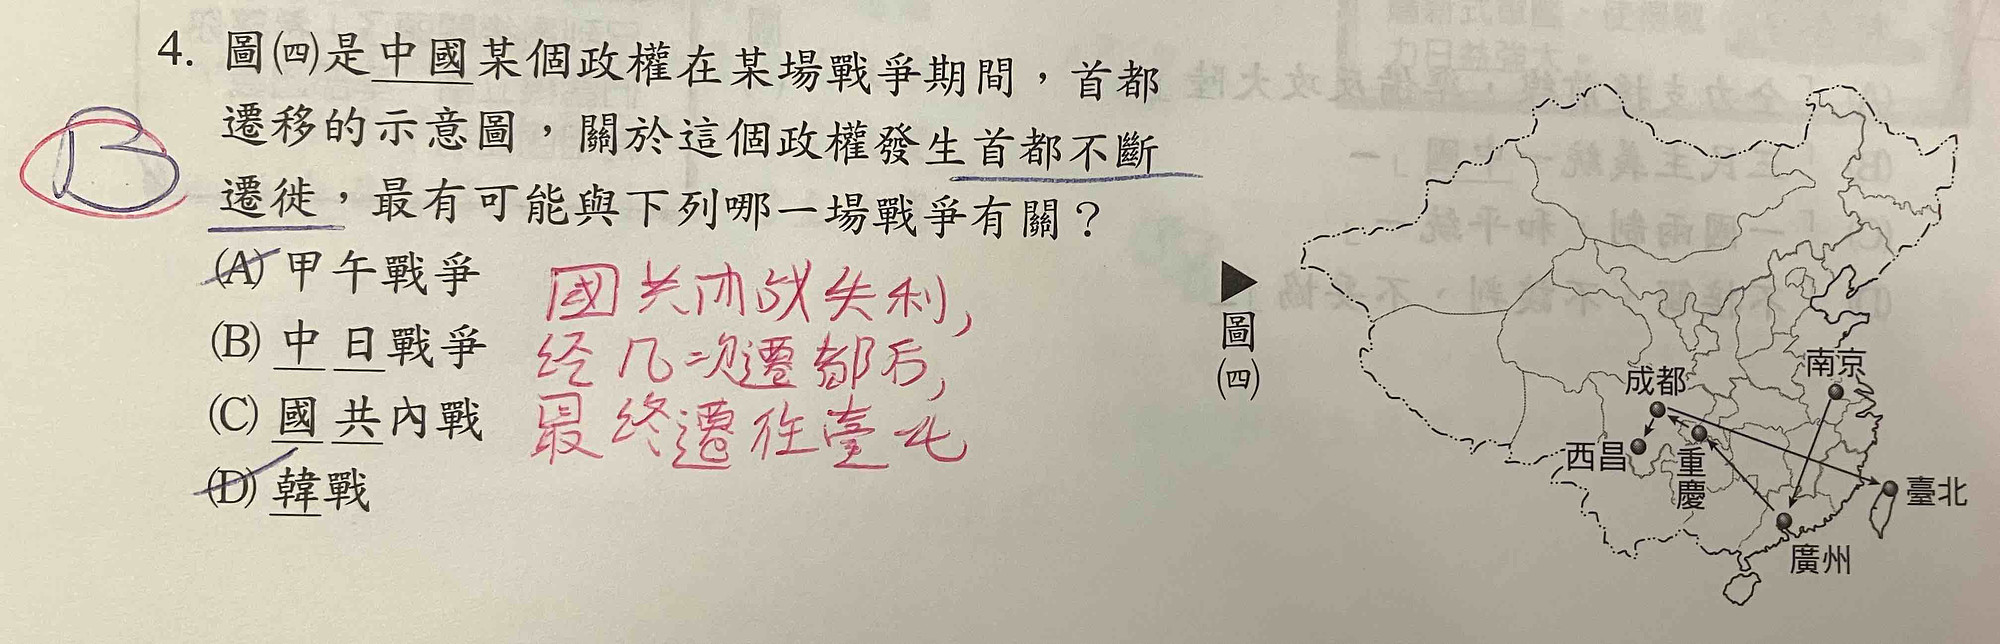 4. 圖㈣是中國某個政權在某場戰爭期間，首都
遷移的示意圖，關於這個政權發生首都不斷
遷徙，最有可能與下列哪一場戰爭有關？
B
(A) 甲午戰爭
(B) 中日戰爭
(C) 國共內戰
(D) 韓戰
國共内战失利,
经几次遷都后,
最终遷往臺北
▶圖㈣
南京
成都
西昌
重慶
臺北
廣州